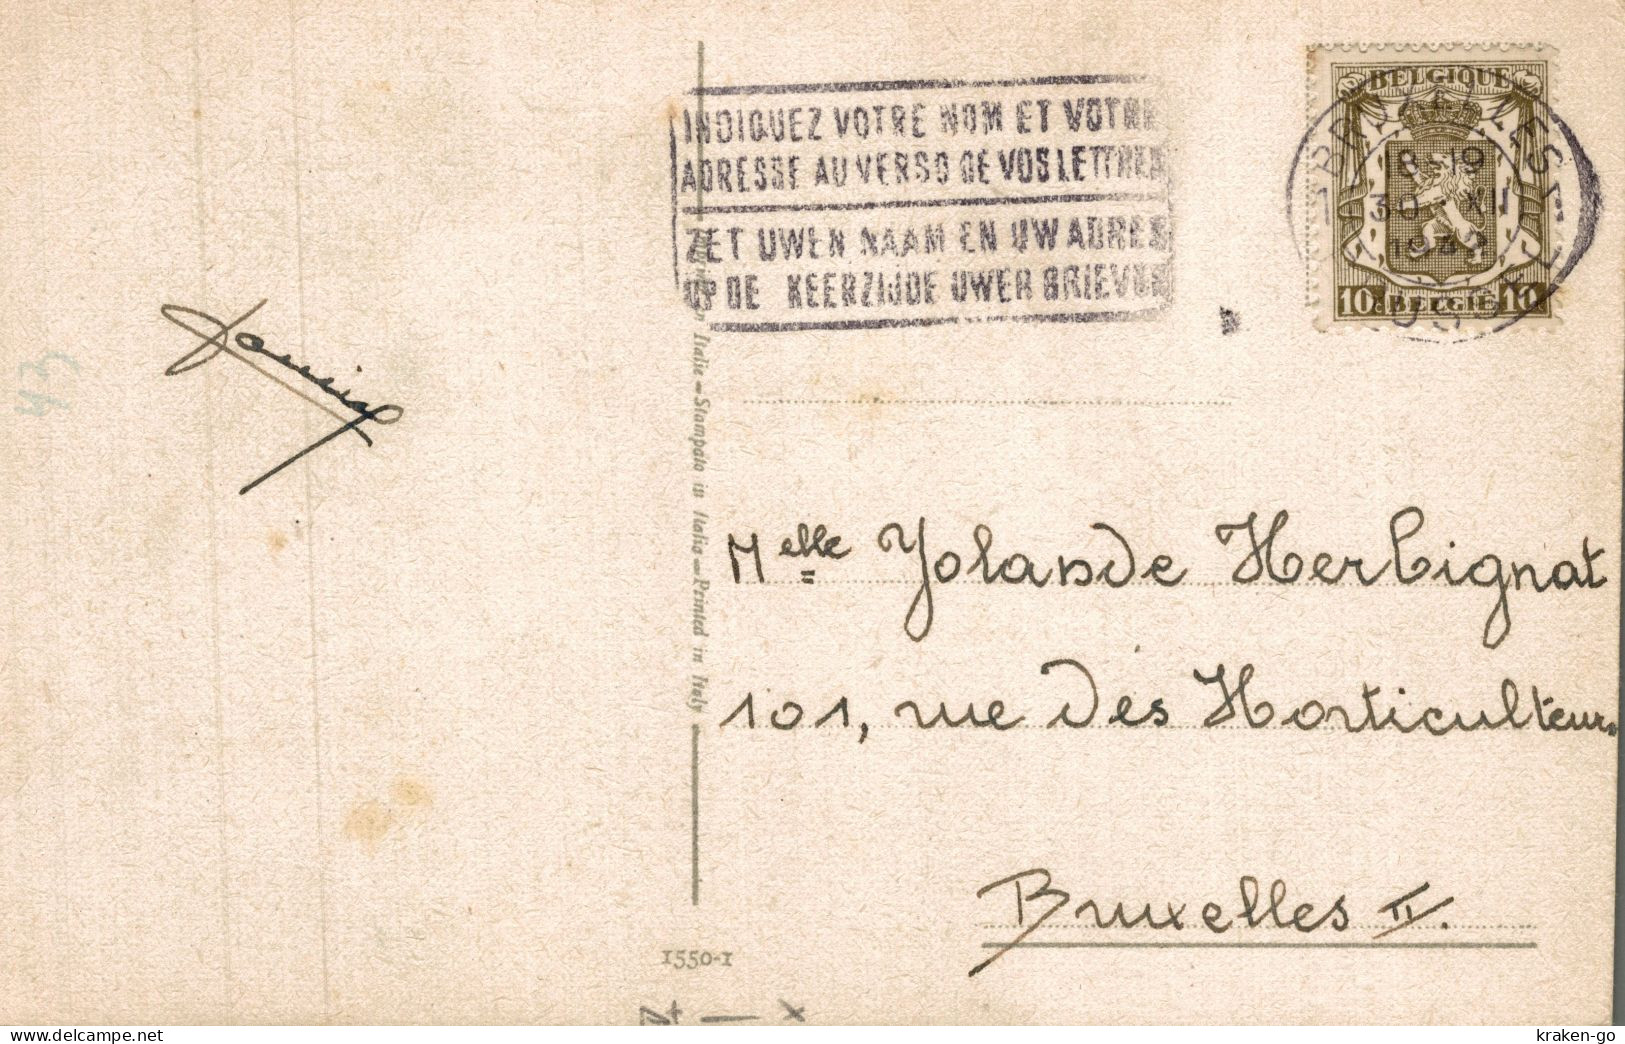 INDIQUEZ VOTRE NOM ET VOTRE
ADRESSE AU VERSO DE VOS LETTRES
ZET UWEN NAAM EN UW ADRES
OP DE KEERZIJDE UWER BRIEVEN
BELGIQUE
BRUXELLES
18-19
30 XII
BRUSSEL
10c BELGIË 10c
Italie - Stampato in Italia - Printed in Italy
43
Melle Yolande Herbignat
101, rue des Horticulteurs
Bruxelles II.
1550-1
kraken-go